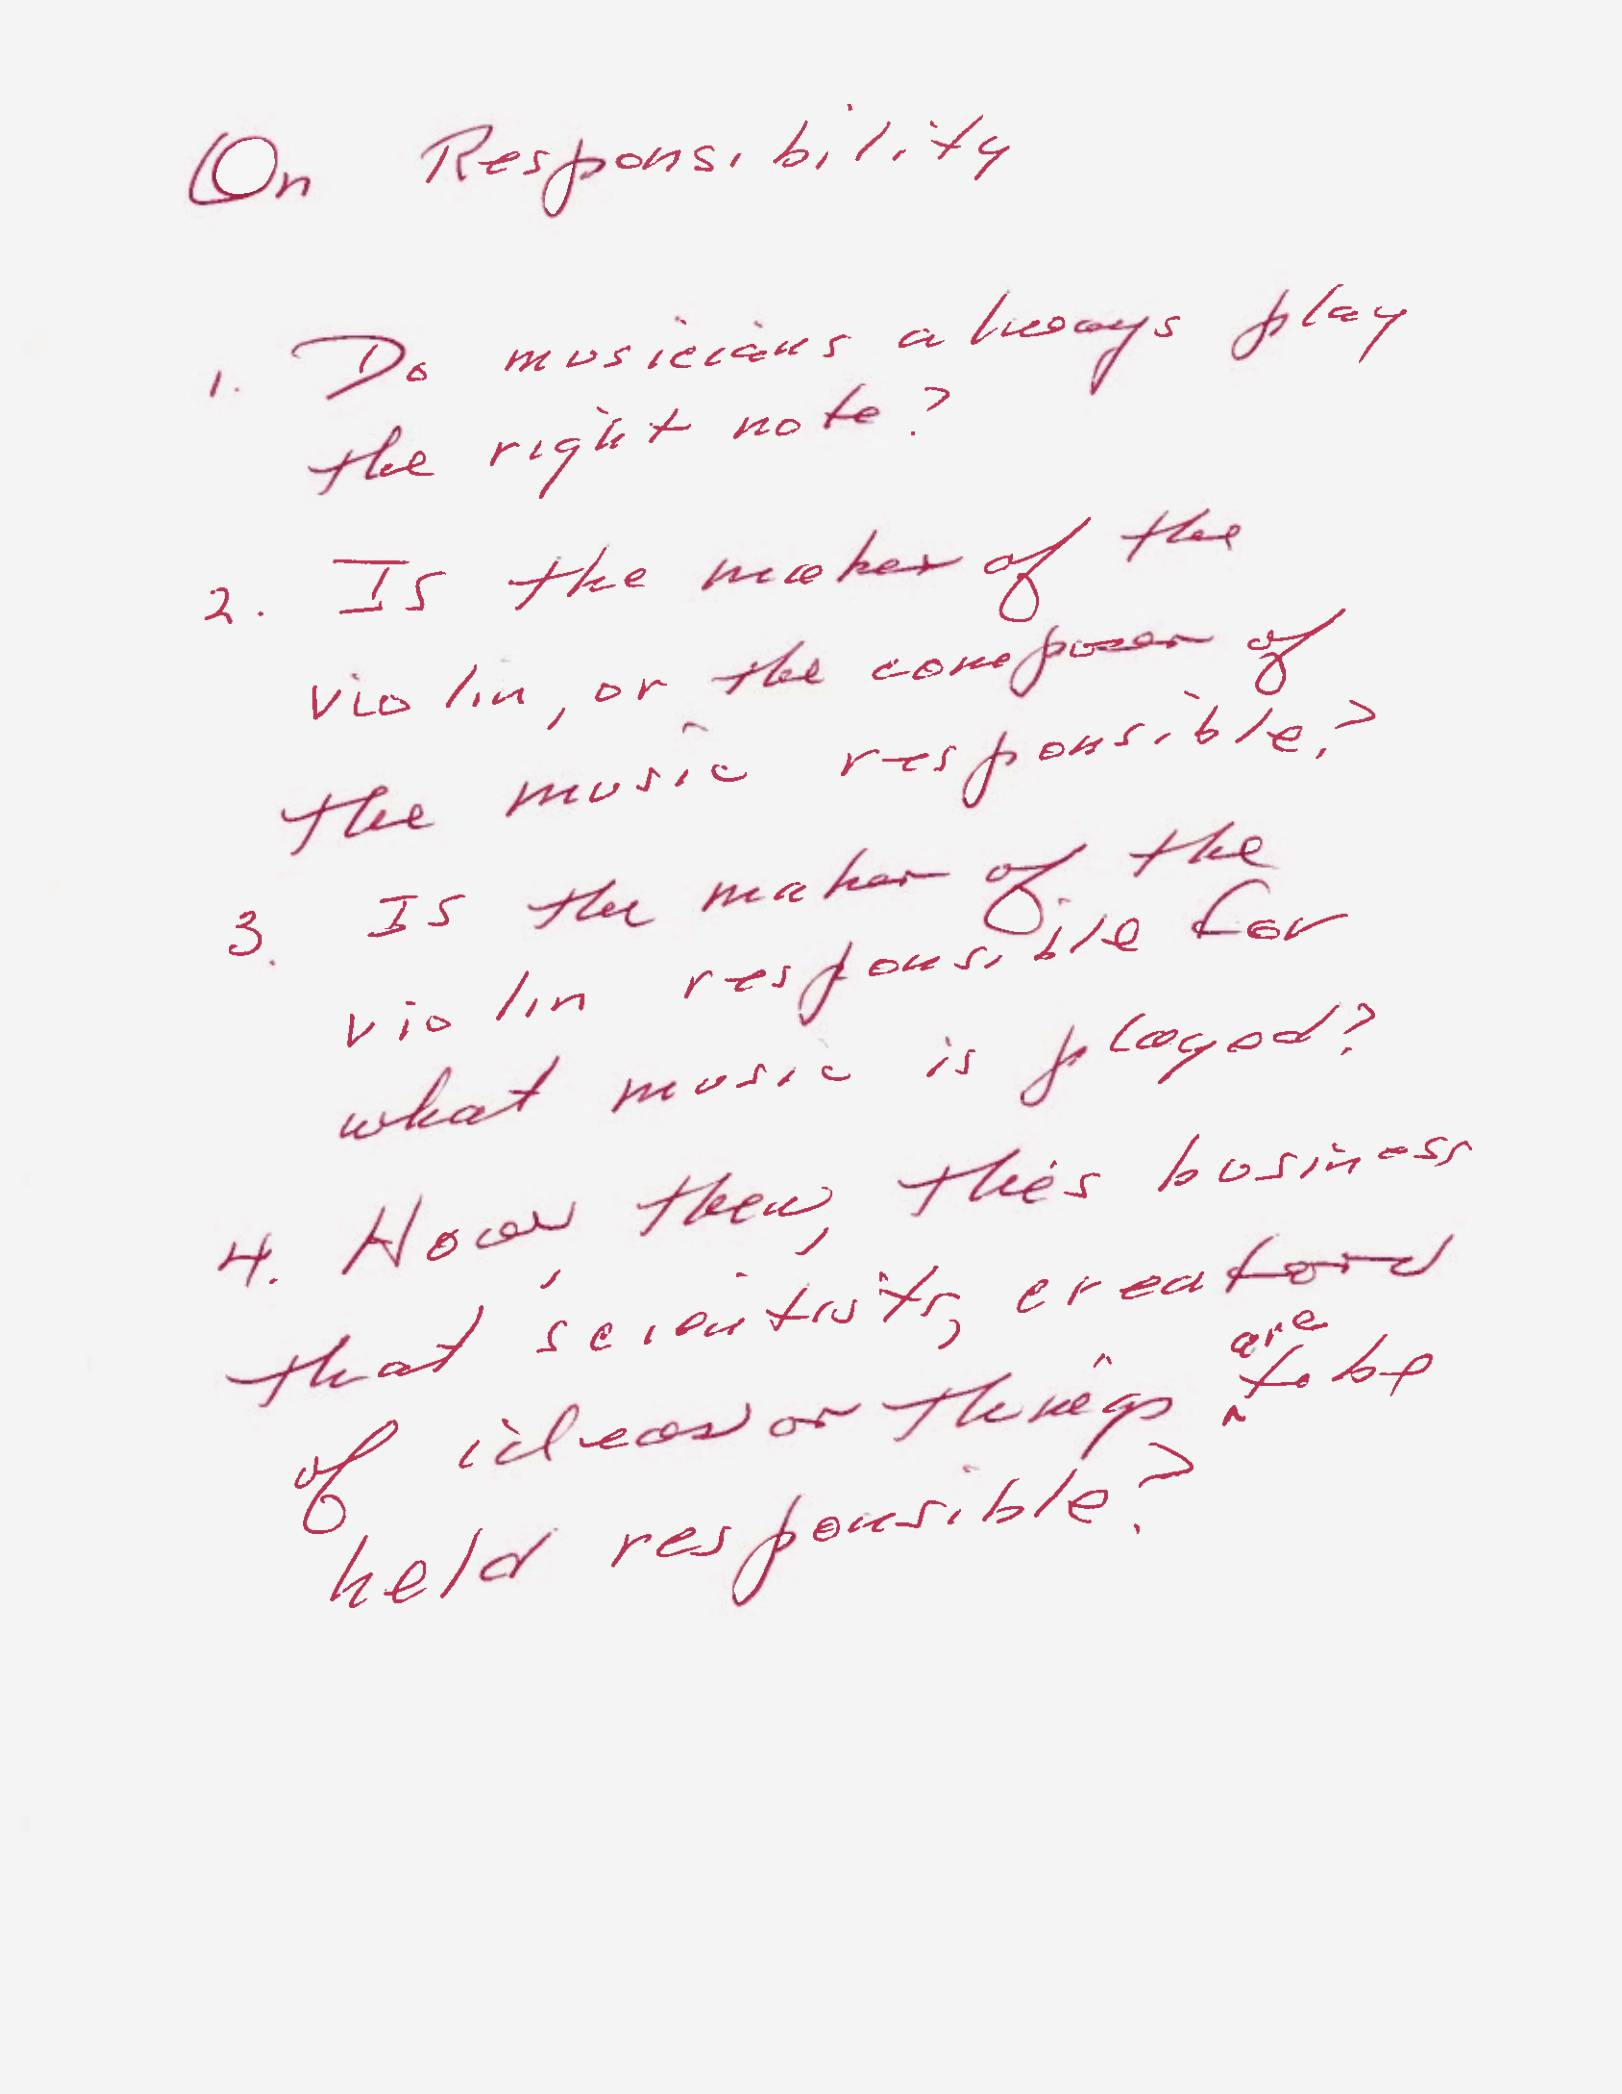 On Responsibility
1. Do musicians always play
the right note?
2. Is the maker of the
violin, or the composer of
the music responsible?
3. Is the maker of the
violin responsible for
what music is played?
4. How, then, this business
that scientists, creators
of ideas or things are to be
held responsible?